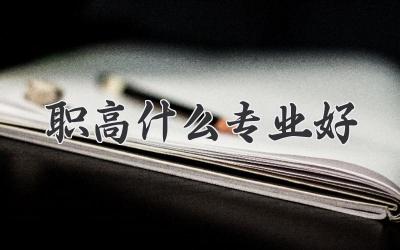 职高什么专业好